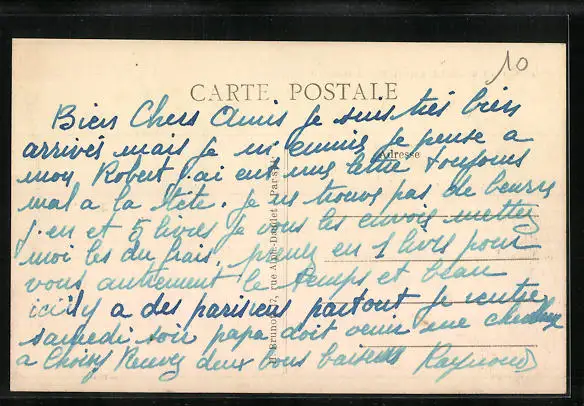 10
CARTE POSTALE
Adresse
Bien Chers Amis je suis très bien
arrivés mais je m ennuie je pense a
mon Robert j.ai eut une lettre toujours
mal a la tete. je ne trouve pas de beurre
j.en et 5 livres je vous les envois mettez
moi les du frais. prenez en 1 livre pour
vous autrement le temps et beau
ici il y a des parisiens partout je rentre
samedi soir papa doit venir me chercher
a Choisy Recevez deux bons baisers Raymond